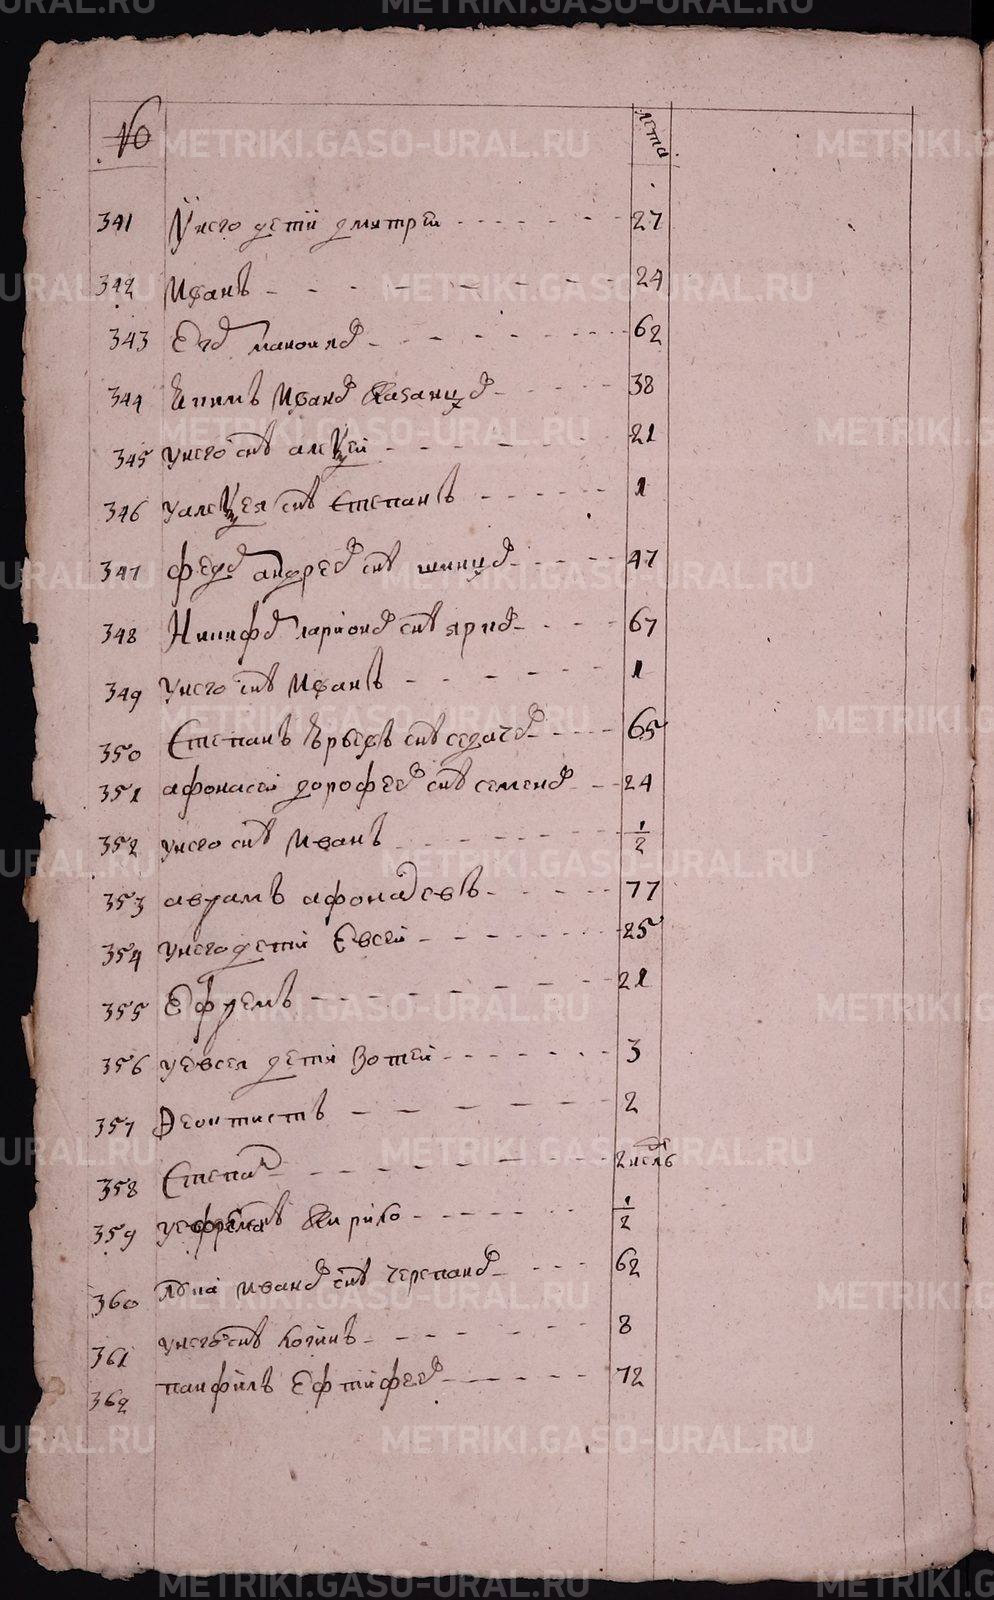 № лета
341 У него дети дмитреи 27
342 Иванъ 24
343 62
344 Иванов Казанцов 38
345 у него снъ алеѯеи 21
346 у алеѯея снъ Степанъ 1
347 федор андреев снъ 47
348 Никифор ларионов снъ 67
349 у него снъ Иванъ 1
350 Степанъ Юрьев снъ 65
351 афонасеи дорофеев снъ семенов 24
352 у него снъ Иванъ 1/2
353 аврамъ 77
354 у него дети Евсеи 25
355 Ефремъ 21
356 у евсея дети Зотеи 3
357 Феоктистъ 2
358 Степан 2 недель
359 у ефрема снъ Кирило 1/2
360 Иванов снъ черепанов 62
361 у него снъ логинъ 8
362 панфилъ Ефтифеев 72
METRIKI.GASO-URAL.RU